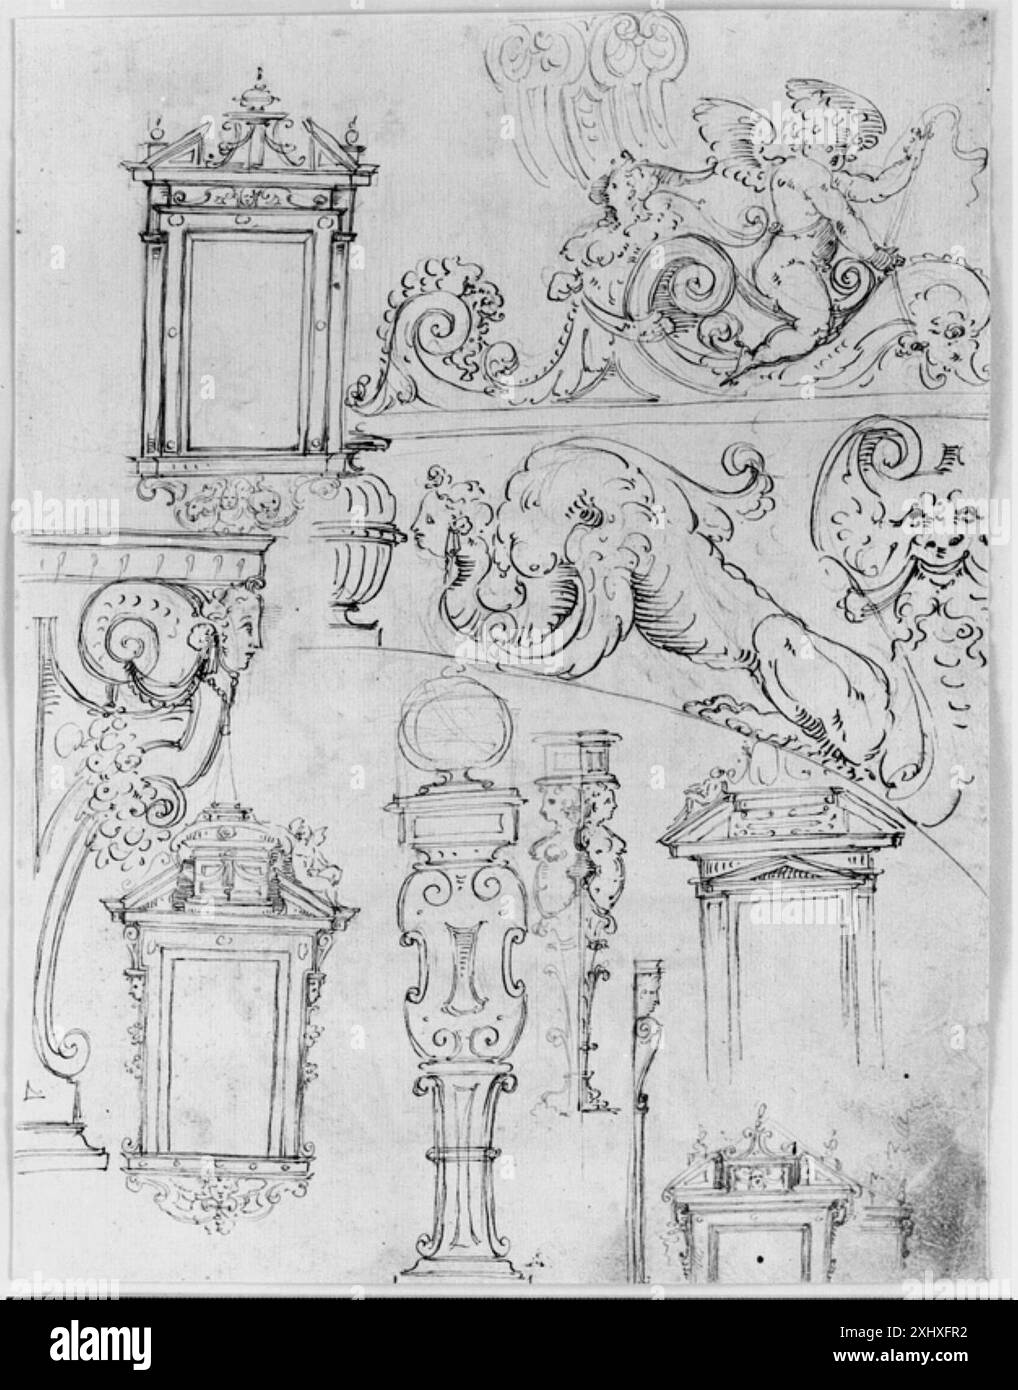 alamy
Image ID: 2XHXFR2
www.alamy.com